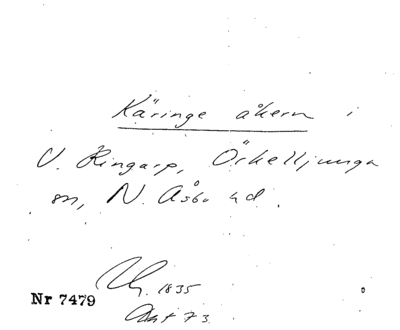 Käringe åkern i
V. Ringarp, Örkelljunga
sn, N. Åsbo hd.
1835
Nr 7479
Akt 73